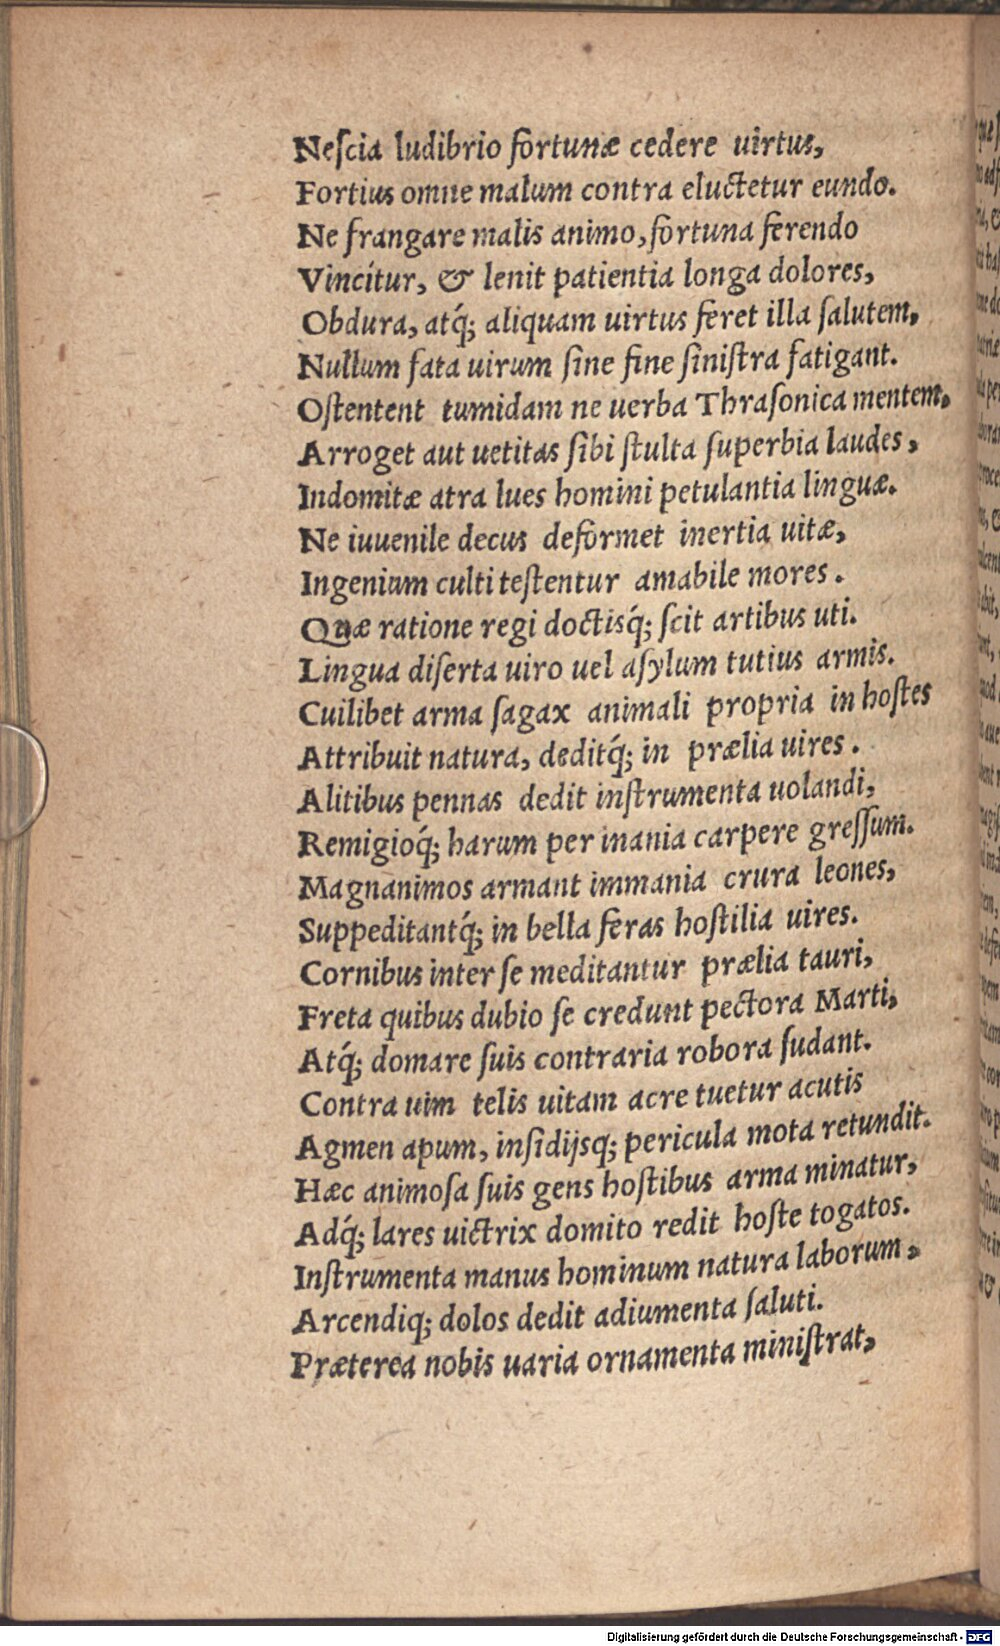 Neſcia ludibrio fortunæ cedere uirtus,
Fortius omne malum contra eluctetur eundo.
Ne frangare malis animo, fortuna ferendo
Vincitur, & lenit patientia longa dolores,
Obdura, atq́; aliquam uirtus feret illa ſalutem,
Nullum fata uirum ſine fine ſiniſtra fatigant.
Oſtentent tumidam ne uerba Thraſonica mentem,
Arroget aut uetitas ſibi ſtulta ſuperbia laudes,
Indomitæ atra lues homini petulantia linguæ.
Ne iuuenile decus deformet inertia uitæ,
Ingenium culti teſtentur amabile mores.
Quæ ratione regi doctisq́; ſcit artibus uti.
Lingua diſerta uiro uel aſylum tutius armis.
Cuilibet arma ſagax animali propria in hoſtes
Attribuit natura, deditq́; in prælia uires.
Alitibus pennas dedit inſtrumenta uolandi,
Remigioq́; harum per inania carpere greſſum.
Magnanimos armant immania crura leones,
Suppeditantq́; in bella feras hoſtilia uires.
Cornibus inter ſe meditantur prælia tauri,
Freta quibus dubio ſe credunt pectora Marti,
Atq́; domare ſuis contraria robora ſudant.
Contra uim telis uitam acre tuetur acutis
Agmen apum, inſidijsq; pericula mota retundit.
Hæc animoſa ſuis gens hoſtibus arma minatur,
Adq́; lares uictrix domito redit hoſte togatos.
Inſtrumenta manus hominum natura laborum,
Arcendiq; dolos dedit adiumenta ſaluti.
Præterea nobis uaria ornamenta miniſtrat,
Digitalisierung gefördert durch die Deutsche Forschungsgemeinschaft - DFG